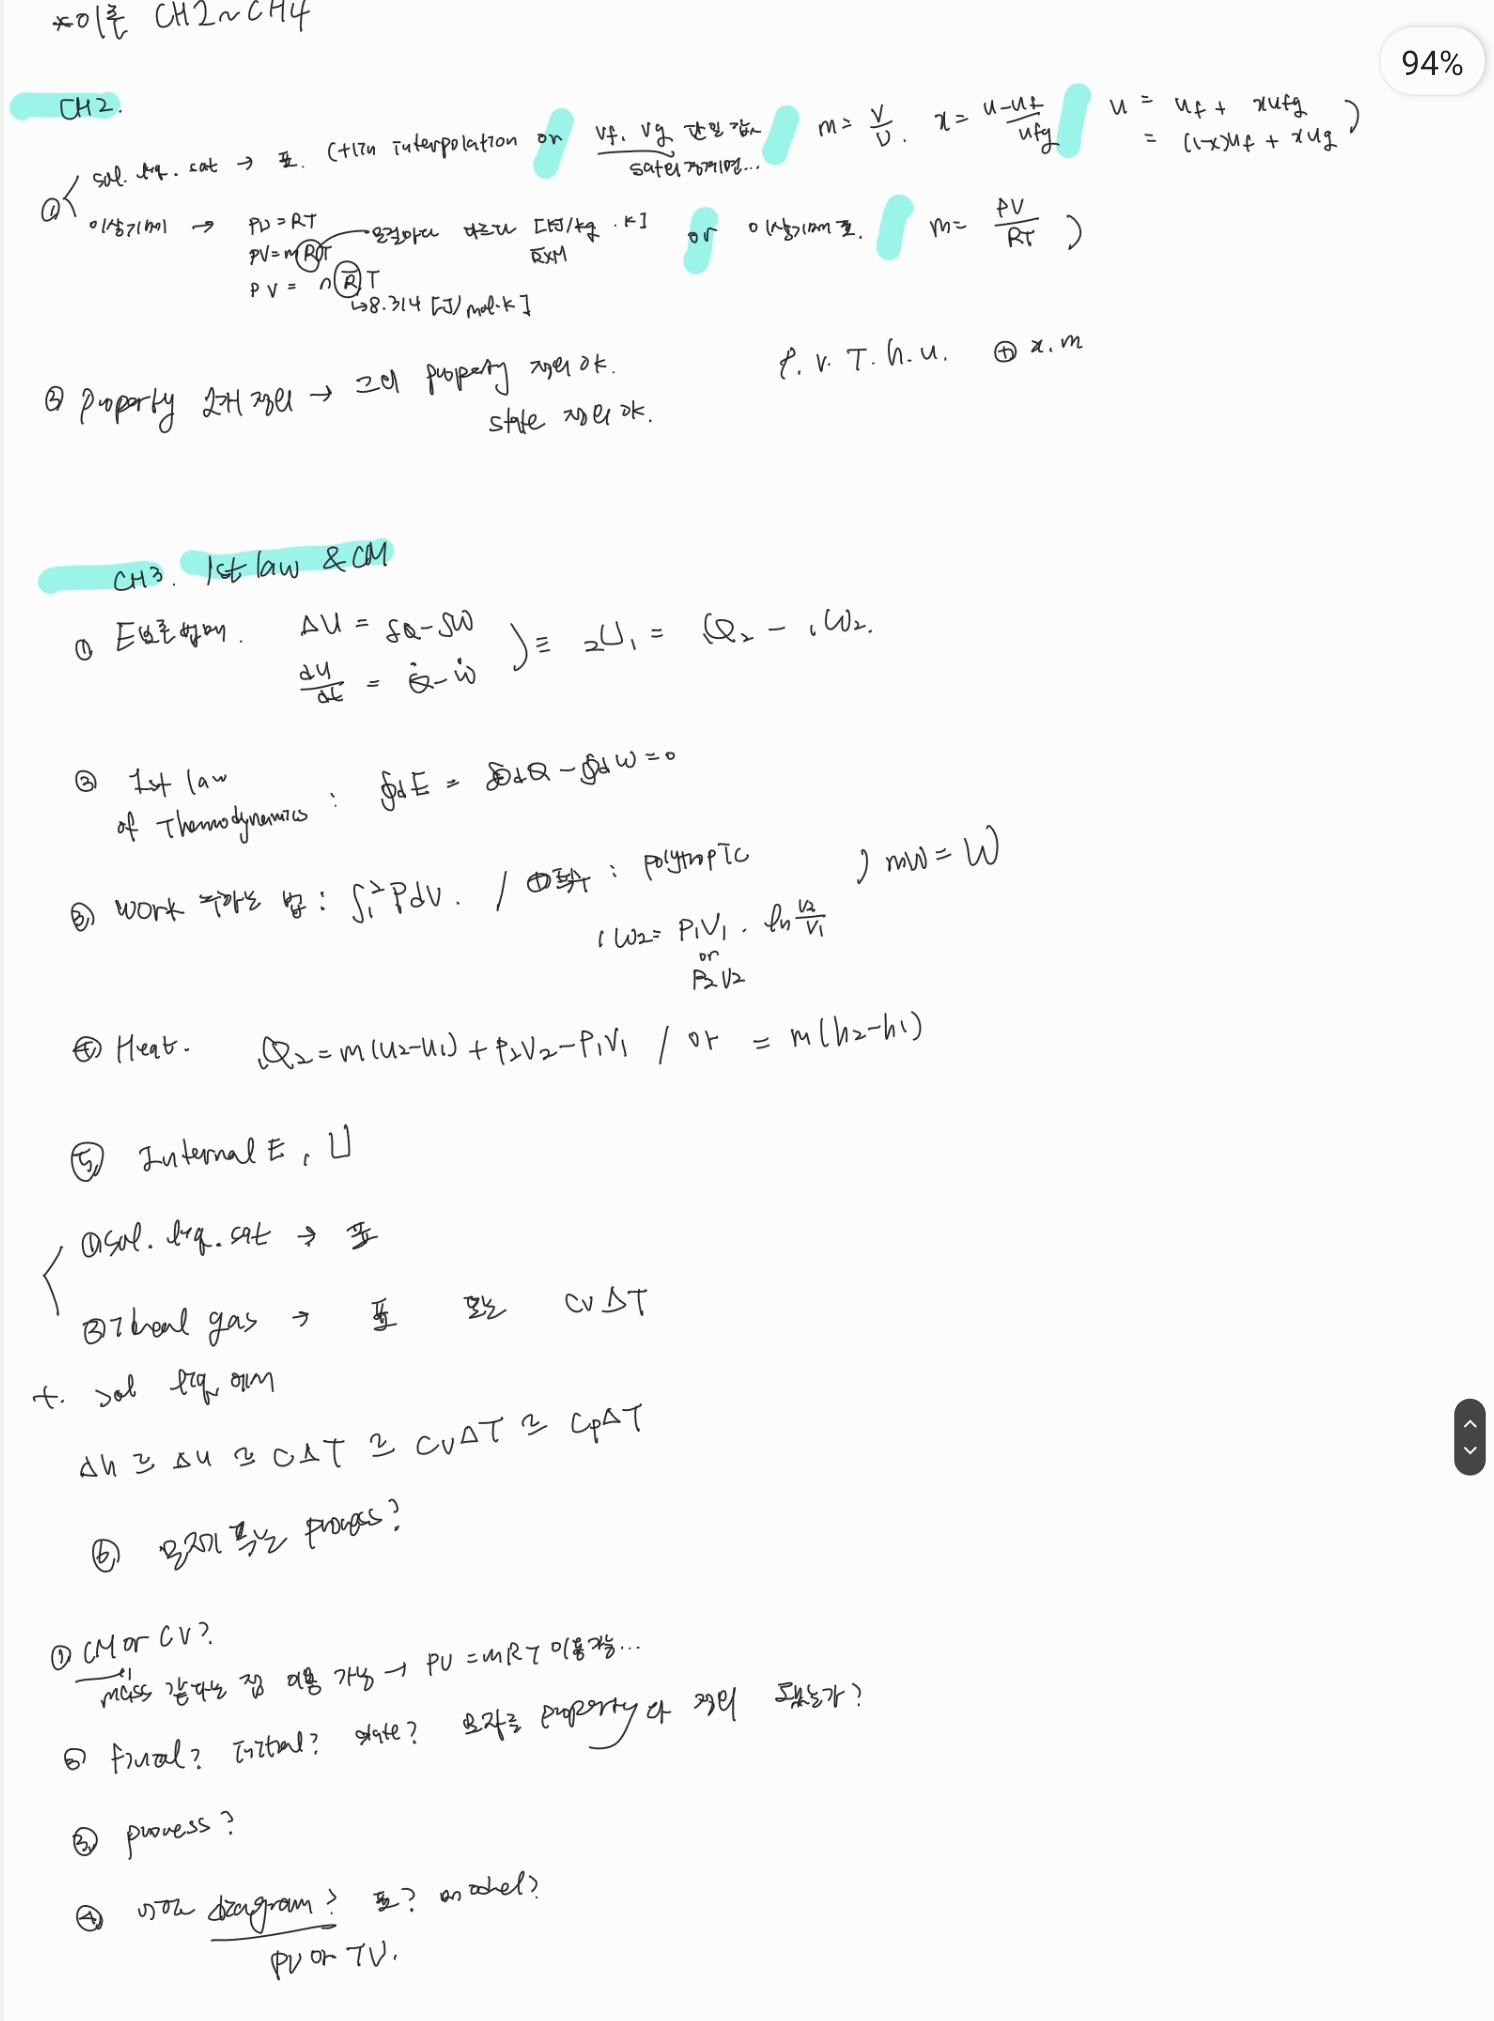 *이론 CH2~CH4
94%
CH2.
① sol. liq. sat → 표. (+lin interpolation or vf, vg 단일 값 / m = V/v. x = (u-uf)/ufg / u = uf + xufg )
sat의 경계면... = (1-x)uf + xug
이상기체 → Pv = RT
PV = mRT 물질마다 다르다 [kJ/kg·K] or 이상기체 표. / m = PV/RT )
R̅×M
PV = nR̅T
↳8.314 [J/mol·K]
② property 2개 정의 → 그외 property 정의 ok. P. v. T. h. u. ⊕ x. m
state 정의 ok.
CH3. 1st law & CM
① E보존법칙. ΔU = δQ-δW ) ≡ ₂U₁ = ₁Q₂ - ₁W₂.
dU/dt = Q̇-Ẇ
② 1st law
of Thermodynamics : ∮dE = ∮dQ - ∮dW = 0
③ Work 구하는 법 : ∫₁²PdV. / : polytropic ) mw = W
₁W₂ = P₁V₁ · ln V₂/V₁
or
P₂V₂
④ Heat. ₁Q₂ = m(u₂-u₁) + P₂V₂-P₁V₁ / or = m(h₂-h₁)
⑤ Internal E, U
① sol. liq. sat → 표
② Ideal gas → 표 또는 CvΔT
+. sol liq에서
Δh ≃ Δu ≃ CΔT ≃ CvΔT ≃ CpΔT
⑥ 문제 푸는 process?
① CM or CV?
mass 같다는 점 이용 가능 → PV = mRT 이용가능...
② final? Initial? state? 모자른 property 다 정의 됐는가?
③ process?
④ diagram? 표? model?
PV or TV.